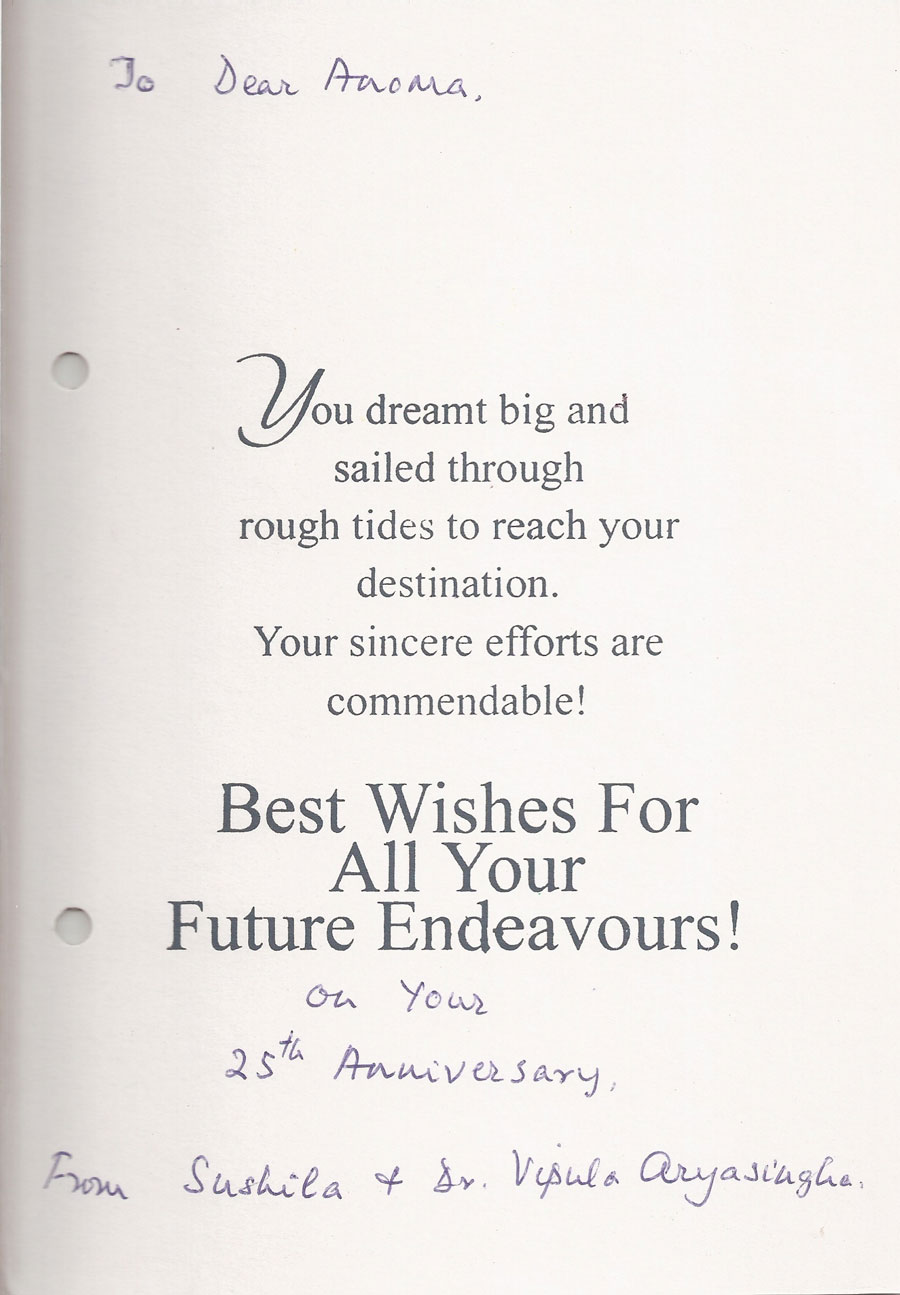 To Dear Anoma,
You dreamt big and
sailed through
rough tides to reach your
destination.
Your sincere efforts are
commendable!
Best Wishes For
All Your
Future Endeavours!
on Your
25th Anniversary,
From Sushila & Dr. Vipula Aryasingha.